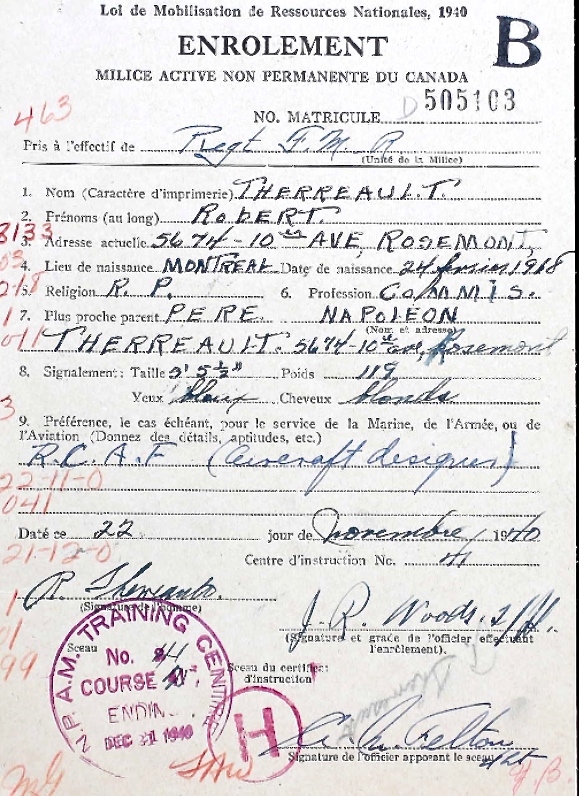 Loi de Mobilisation de Ressources Nationales, 1940
ENROLEMENT
B
MILICE ACTIVE NON PERMANENTE DU CANADA
463
NO. MATRICULE D 505103
Pris à l'effectif de Regt F. M. R
(Unité de la Milice)
1. Nom (Caractère d'imprimerie) THERREAULT.
2. Prénoms (au long) ROBERT.
8133
3. Adresse actuelle 5674-10 AVE, ROSEMONT,
4. Lieu de naissance MONTREAL Date de naissance 24 1918
5. Religion R. P. 6. Profession COMMIS.
7. Plus proche parent PERE NAPOLEON
(Nom et adresse)
THERREAULT. 5674-10 ave, Rosemont
8. Signalement: Taille 5' 5½" Poids 119
Yeux bleux Cheveux blonds
9. Préférence, le cas échéant, pour le service de la Marine, de l'Armée, ou de
l'Aviation (Donnez des détails, aptitudes, etc.)
R.C.A.F (aircraft designer)
22-11-0
041
Daté ce 22 jour de Novembre 1940
21-12-0
Centre d'instruction No. 41
(Signature de l'homme)
J. R. Woods.
(Signature et grade de l'officier effectuant
l'enrôlement).
Sceau
N.P.A.M. TRAINING CENTRE
No. 41
COURSE
ENDIN
DEC 21 1940
Sceau du certificat
d'instruction
H
99
Felton
Signature de l'officier apposant le sceau